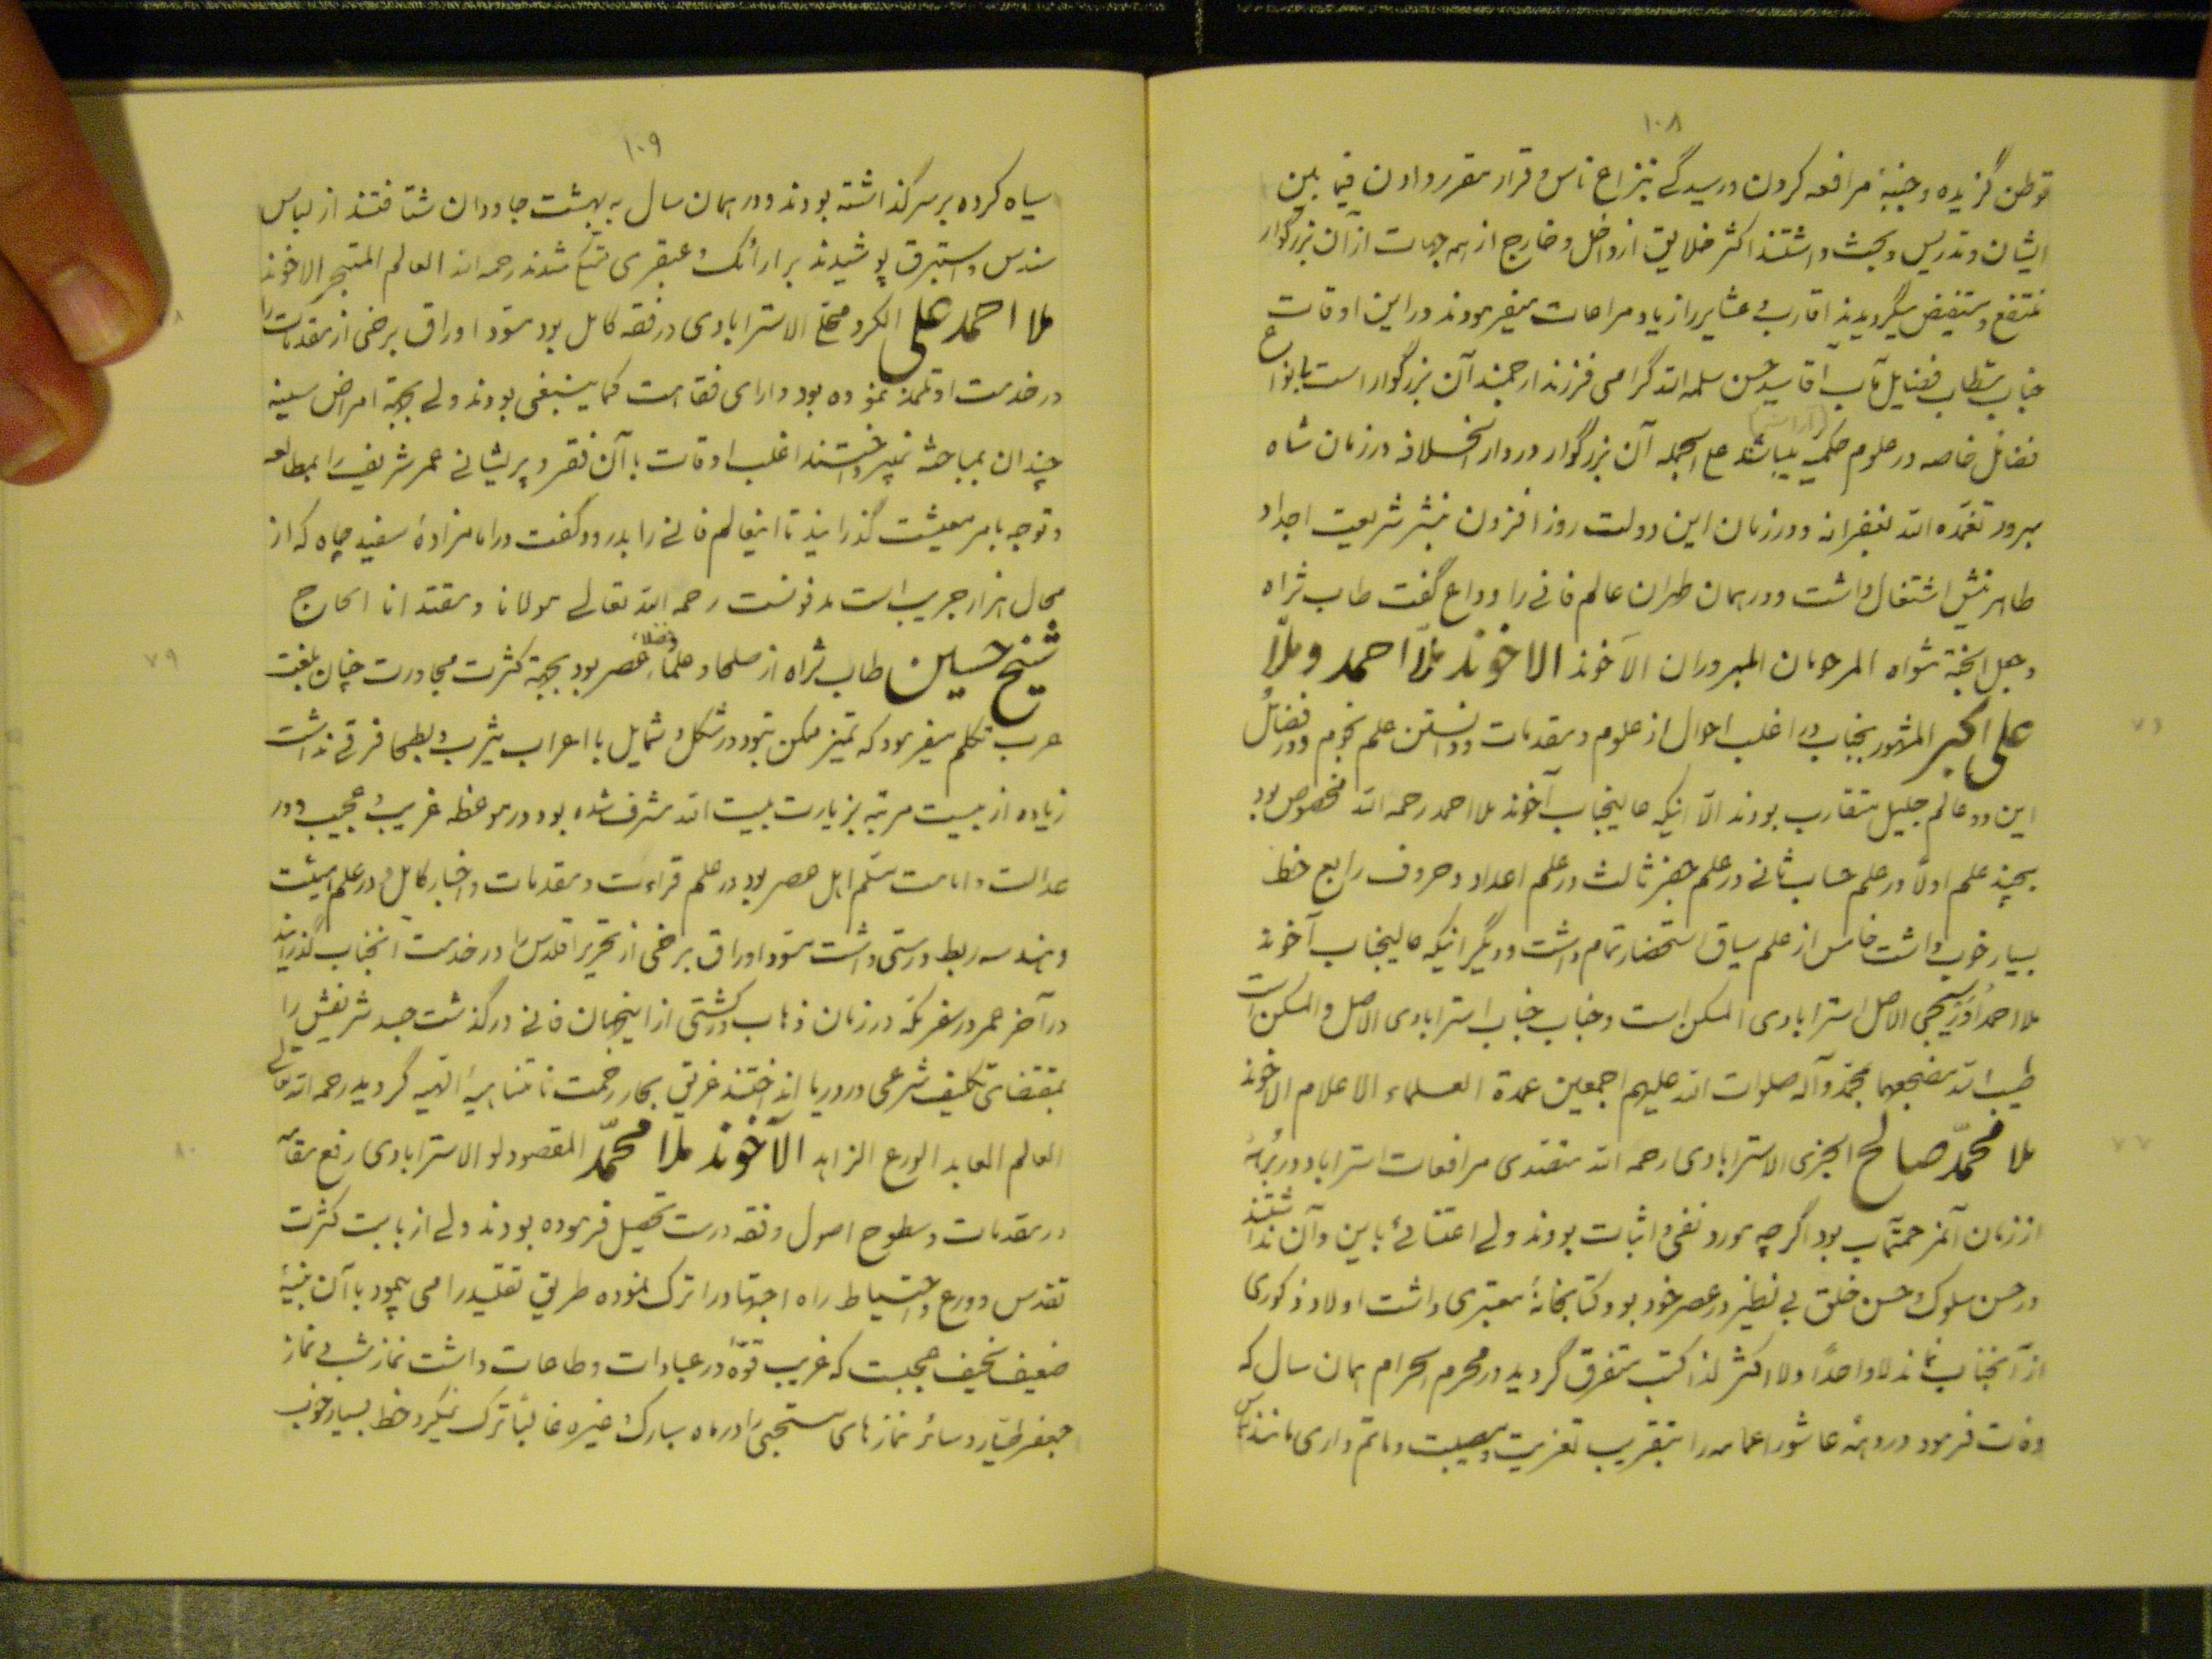 ۱۰۸
توطن گزیده و جنبهٔ مرافعه کردن و رسیدگی بنزاع ناس و قرار مقرر دادن فیما بین
ایشان و تدریس و بحث داشتند اکثر خلایق از داخل و خارج از همه جهات از آن بزرگوار
منتفع و مستفیض میگردیدند اقارب و عشایر را زیاد مراعات میفرمودند در این اوقات
جناب مستطاب فضایل مآب آقا سید حسن سلمه الله گرامی فرزند ارجمند آن بزرگوار است بانواع
فضائل خاصه در علوم حکمیه (آراسته) میباشد علی الجمله آن بزرگوار در دار الخلافه در زمان شاه
مبرور تغمده الله بغفرانه و در زمان این دولت روز افزون بنشر شریعت اجداد
طاهرینش اشتغال داشت و در همان طهران عالم فانی را وداع گفت طاب ثراه
و جعل الجنة مثواه المرحومان المبروران الآخوند الاخوند ملا احمد و ملا
علی اکبر المشهور بجناب در اغلب احوال از علوم و مقدمات و دانستن علم نجوم و در فضائل
این دو عالم جلیل متقارب بودند الّا اینکه عالیجناب آخوند ملا احمد رحمه الله مخصوص بود
بچند علم اولاً در علم حساب ثانی در علم جفر ثالث در علم اعداد و حروف رابع خط
بسیار خوب داشت خامس از علم سیاق استحضار تمام داشت و دیگر اینکه عالیجناب آخوند
ملا احمد الاصل استرابادی المسکن است و جناب جناب استرابادی الاصل و المسکن است
طیب الله مضجعهما بمحمد و آله صلوات الله علیهم اجمعین عمدة العلماء الاعلام الاخوند
ملا محمّد صالح الجزی الاسترابادی رحمه الله متصدی مرافعات استراباد در برههٔ
از زمان آنمرحمتمآب بود اگر چه مورد نفی و اثبات بودند ولی اعتنائی باین و آن نداشتند
در حسن سلوک و حسن خلق بی نظیر در عصر خود بود و کتابخانهٔ معتبری داشت اولاد ذکوری
از آنجناب نماند لا واحداً و لا اکثر لذا کتب متفرق گردید در محرم الحرام همان سال که
وفات فرمود در دههٔ عاشورا عمامه را بتقریب تعزیت و مصیبت و ماتم داری مانند لباس
۱۰۹
سیاه کرده بر سر گذاشته بودند و در همان سال به بهشت جاودان شتافتند از لباس
سندس و استبرق پوشیدند بر ارائک و عبقری متکی شدند رحمه الله العالم المتبحر الاخوند
ملا احمد علی الکرد محله الاسترابادی در فقه کامل بود مسوّد اوراق برخی از مقدمات را
در خدمت او تلمذ نموده بود دارای فقاهت کما ینبغی بودند ولی بجهة امراض سینه
چندان بمباحثه نمیپرداختند اغلب اوقات با آن فقر و پریشانی عمر شریف را بمطالعه
و توجه بامر معیشت گذرانید تا اینعالم فانی را بدرود گفت در امامزادهٔ سفید چاه که از
محال هزار جریب است مدفونست رحمه الله تعالی مولانا و مقتدانا الحاج
شیخ حسین طاب ثراه از صلحا و علما و فضلاء عصر بود بجهة کثرت مجاورت چنان بلغت
عرب تکلم میفرمود که تمیز ممکن نبود در شکل و شمایل با اعراب یثرب و بطحا فرقی نداشت
زیاده از بیست مرتبه بزیارت بیت الله مشرف شده بود در موعظه غریب و عجیب و در
عدالت و امامت مسلّم اهل عصر بود در علم قراءت و مقدمات و اخبار کامل و در علم هیئت
و هندسه ربط درستی داشت مسوّد اوراق برخی از تحریر اقلیدس را در خدمت آنجناب گذرانید
در آخر عمر در سفر مکّه در زمان ذهاب در کشتی از اینجهان فانی درگذشت جسد شریفش را
بمقتضای تکلیف شرعی در دریا انداختند غریق بحار رحمت نامتناهیهٔ الهیه گردید رحمه الله تعالی
العالم العابد الورع الزاهد الآخوند ملا محمّد المقصودلو الاسترابادی رفع مقامه
در مقدمات و سطوح اصول و فقه درست تحصیل فرموده بودند ولی از بابت کثرت
تقدس و ورع و احتیاط راه اجتهاد را ترک نموده طریق تقلید را می پیمود با آن بنیهٔ
ضعیف نحیف عجبست که غریب قوّهٔ در عبادات و طاعات داشت نماز شب و نماز
جعفر طیّار و سائر نمازهای مستحبی را در ماه مبارک و غیره غالباً ترک نمیکرد خط بسیار خوب
۷۹
۸۰
۷۷